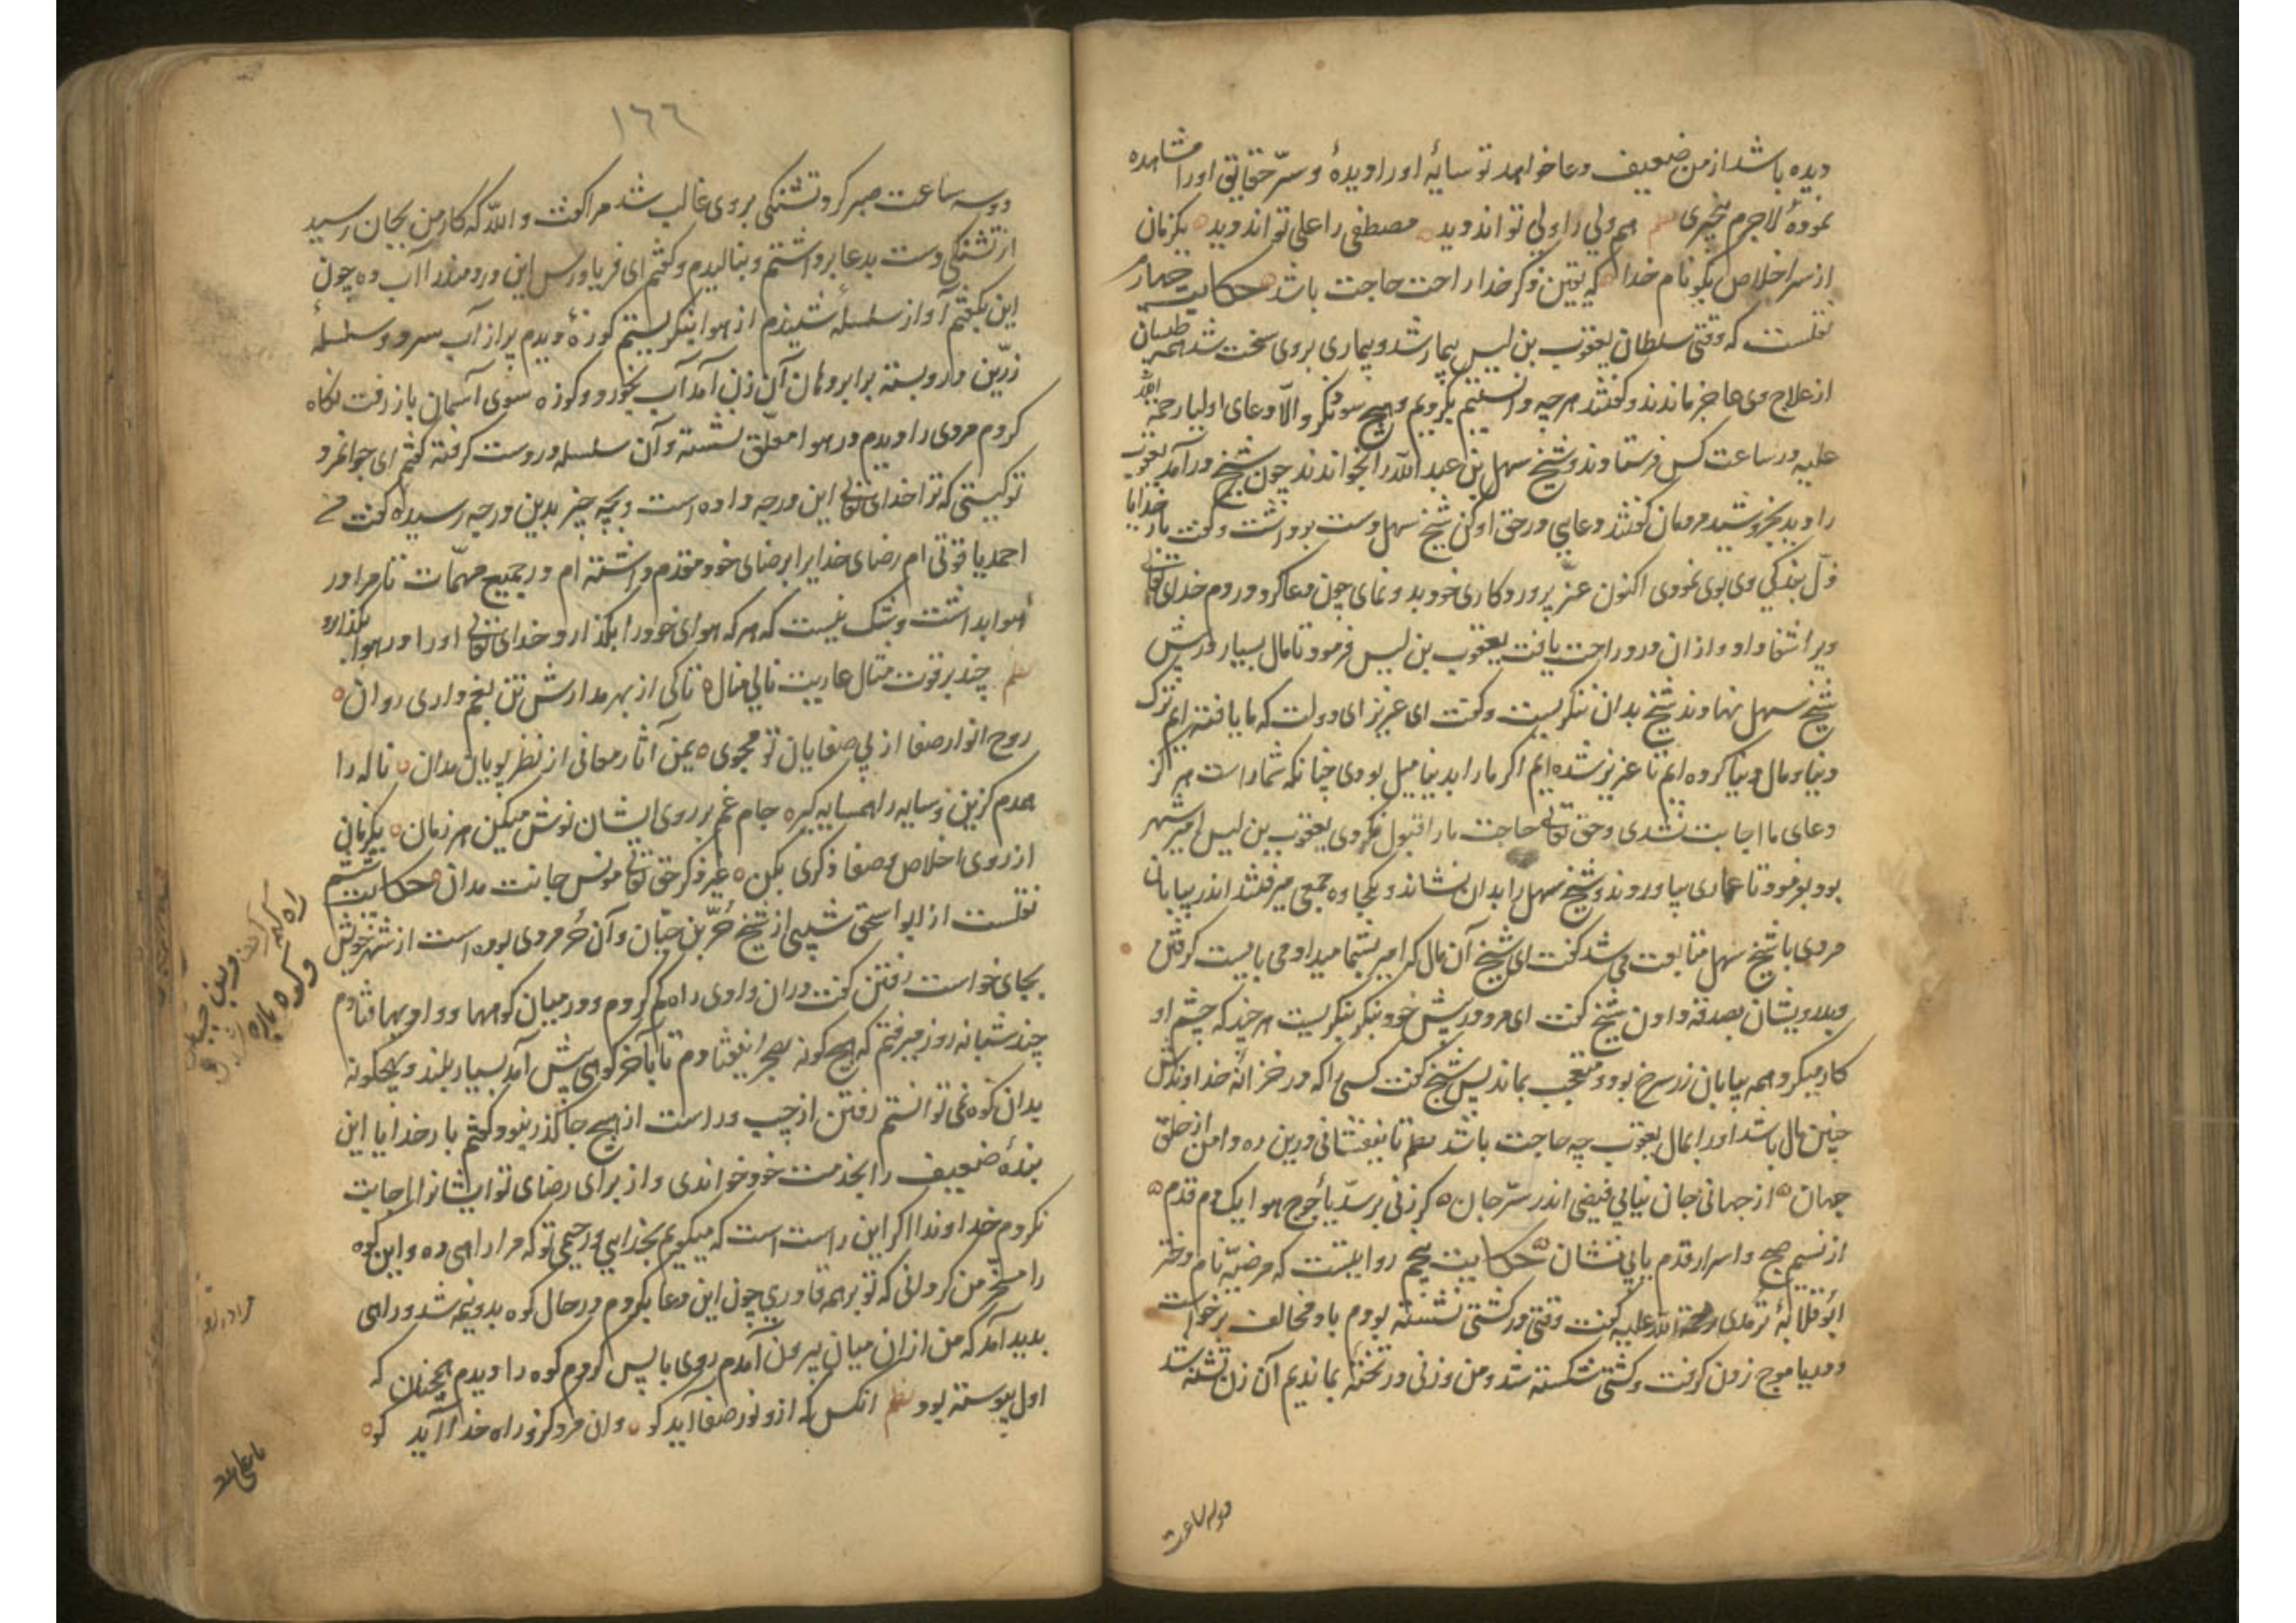 دیده باشد از من ضعیف دعا خواهد تو سایهٔ او را دیدهٔ و سرّ حقایق او را مشاهده
نمودهٔ لاجرم بخیری نظم هم ولی را ولی تواند دید مصطفی را علی تواند دید یکزمان
از سر اخلاص بگو نام خدا که یقین ذکر خدا راحت حاجت باشد حکایت چهارم
نقلست که وقتی سلطان یعقوب بن لیس بیمار شد و بیماری بر وی سخت شد همه طبیبان
از علاج وی عاجز ماندند و گفتند هرچه دانستیم بکردیم و هیچ سود نکرد والّا دعای اولیا رحمة الله
علیه در ساعت کس فرستادند و شیخ سهل بن عبد الله را بخواندند چون شیخ درآمد یعقوب
را دید بخروشید مردمان گفتند دعایی در حق او کن شیخ سهل دست برداشت و گفت بار خدایا
ذلّ بندگی وی بوی نمودی اکنون عزّ پروردکاری خود بدو نمای چون دعا کرد در دم خدای تعالی
ویرا شفا داد و از ان درد راحت یافت یعقوب بن لیس فرمود تا مال بسیار در پیش
شیخ سهل نهادند شیخ بدان ننکریست و کفت ای عزیز ای دولت که ما یافته ایم ترک
دنیا و مال دنیا کرده ایم تا عزیز شده ایم اکر ما را بدنیا میل بودی چنانکه شما راست هرکز
دعای ما اجابت نشدی و حق تعالی حاجت ما را قبول نکردی یعقوب بن لیس امیر شهر
بود بفرمود تا عماری بیاوردند و شیخ سهل را بدان بنشاندند و بکجاوه جمعی میرفتند اندر بیابان
مردی با شیخ سهل متابعت می شد کفت ای شیخ آن مال که امیر بشما میداد می بایست کرفتن
و بدرویشان بصدقه دادن شیخ کفت ای مرد در پیش خود بنکر بنکریست هر چند که چشم او
کار میکرد همه بیابان زر سرخ بود متعجب بماند پس شیخ کفت کسی را که در خزانهٔ خداوندش
چنین مال باشد او را بمال یعقوب چه حاجت باشد نظم تا نیفشانی درین ره دامن از خلق
جهان از جهانی جان نیابی فیضی اندر سرّ جان کر زنی بر سدّ یأجوج هوا یک دم قدم
از نسیم صبح واسرار قدم یابی نشان حکایت پنجم روایتست که مرضیّه نام دختر
ابو قلابهٔ ترمدی رحمة الله علیه کفت وقتی در کشتی نشسته بودم باد مخالف برخواست
و دریا موج زدن کرفت و کشتی شکسته شد و من و زنی در تخته بماندیم آن زن تشنه شد
دو سه ساعت
١٦٦
دو سه ساعت صبر کرد تشنکی بر وی غالب شد مرا کفت والله که کار من بجان رسید
از تشنکی دست بدعا برداشتم و بنالیدم و کفتم ای فریاد رس این دردمند را آب ده چون
این بکفتم آواز سلسلهٔ شنیدم از هوا بنکریستم کوزهٔ دیدم پر از آب سرد و سلسلهٔ
زرّین در او بسته برابر دهان آن زن آمد آب بخورد و کوزه سوی آسمان باز رفت نکاه
کردم مردی را دیدم در هوا معلّق نشسته و آن سلسله در دست کرفته کفتم ای جوانمرد
تو کیستی که ترا خدای تعالی این درجه داده است و بچه چیز بدین درجه رسیده کفت
احمد یاقوتی ام رضای خدایرا بر رضای خود مقدم داشته ام در جمیع مهمّات تا مرا در
هوا بداشت و شک نیست که هر که هوای خود را بکذارد خدای تعالی او را در هوا بکذارد
نظم چند بر قوت مثال عاریت نالی منال تا کی از بهر مدارش تن بغم داری روان
روح انوار صفا از پی صفایان تو مجوی یمن آثار معانی از نظر پویان مدان ناله را
همدم کزین و سایه را همسایه کیر جام غم بر روی ایشان نوش میکن هر زمان یکزمانی
از روی اخلاص و صفا ذکری بکن غیر ذکر حق تعالی مونس جانت مدان حکایت ششم
نقلست از ابو اسحق شیبی از شیخ حُرّ بن حیّان و آن حُر مردی بوده است از شهر خویش
بجای خواست رفتن کفت در ان وادی راه کم کردم و در میان کوهها و وادیها فتادم
چند شبانه روز میرفتم که هیچ کونه بهجرا نیفتادم تا بآخر کوهی پیش آمد بسیار بلند و بهیچکونه
بدان کوه نمی توانستم رفتن از چپ و راست از هیچ جا کذر نبود کفتم بار خدایا این
بندهٔ ضعیف را بخدمت خود خواندی و از برای رضای تو ایشانرا اجابت
نکردم خداوندا اکر این راست است که میکویم بخدایی و رحیمی تو که مرا راهی ده و این کوه
را مسخّر من کردانی که تو بر همه قادری چون این دعا بکردم در حال کوه بدو نیمه شد و راهی
بدید آمد که من از ان میان بیرون آمدم روی باپس کردم کوه را دیدم همچنان که
اول پیوسته بود نظم انکس که ازو نور صفا آید کو وان مرد کزو راه خدا آید کو